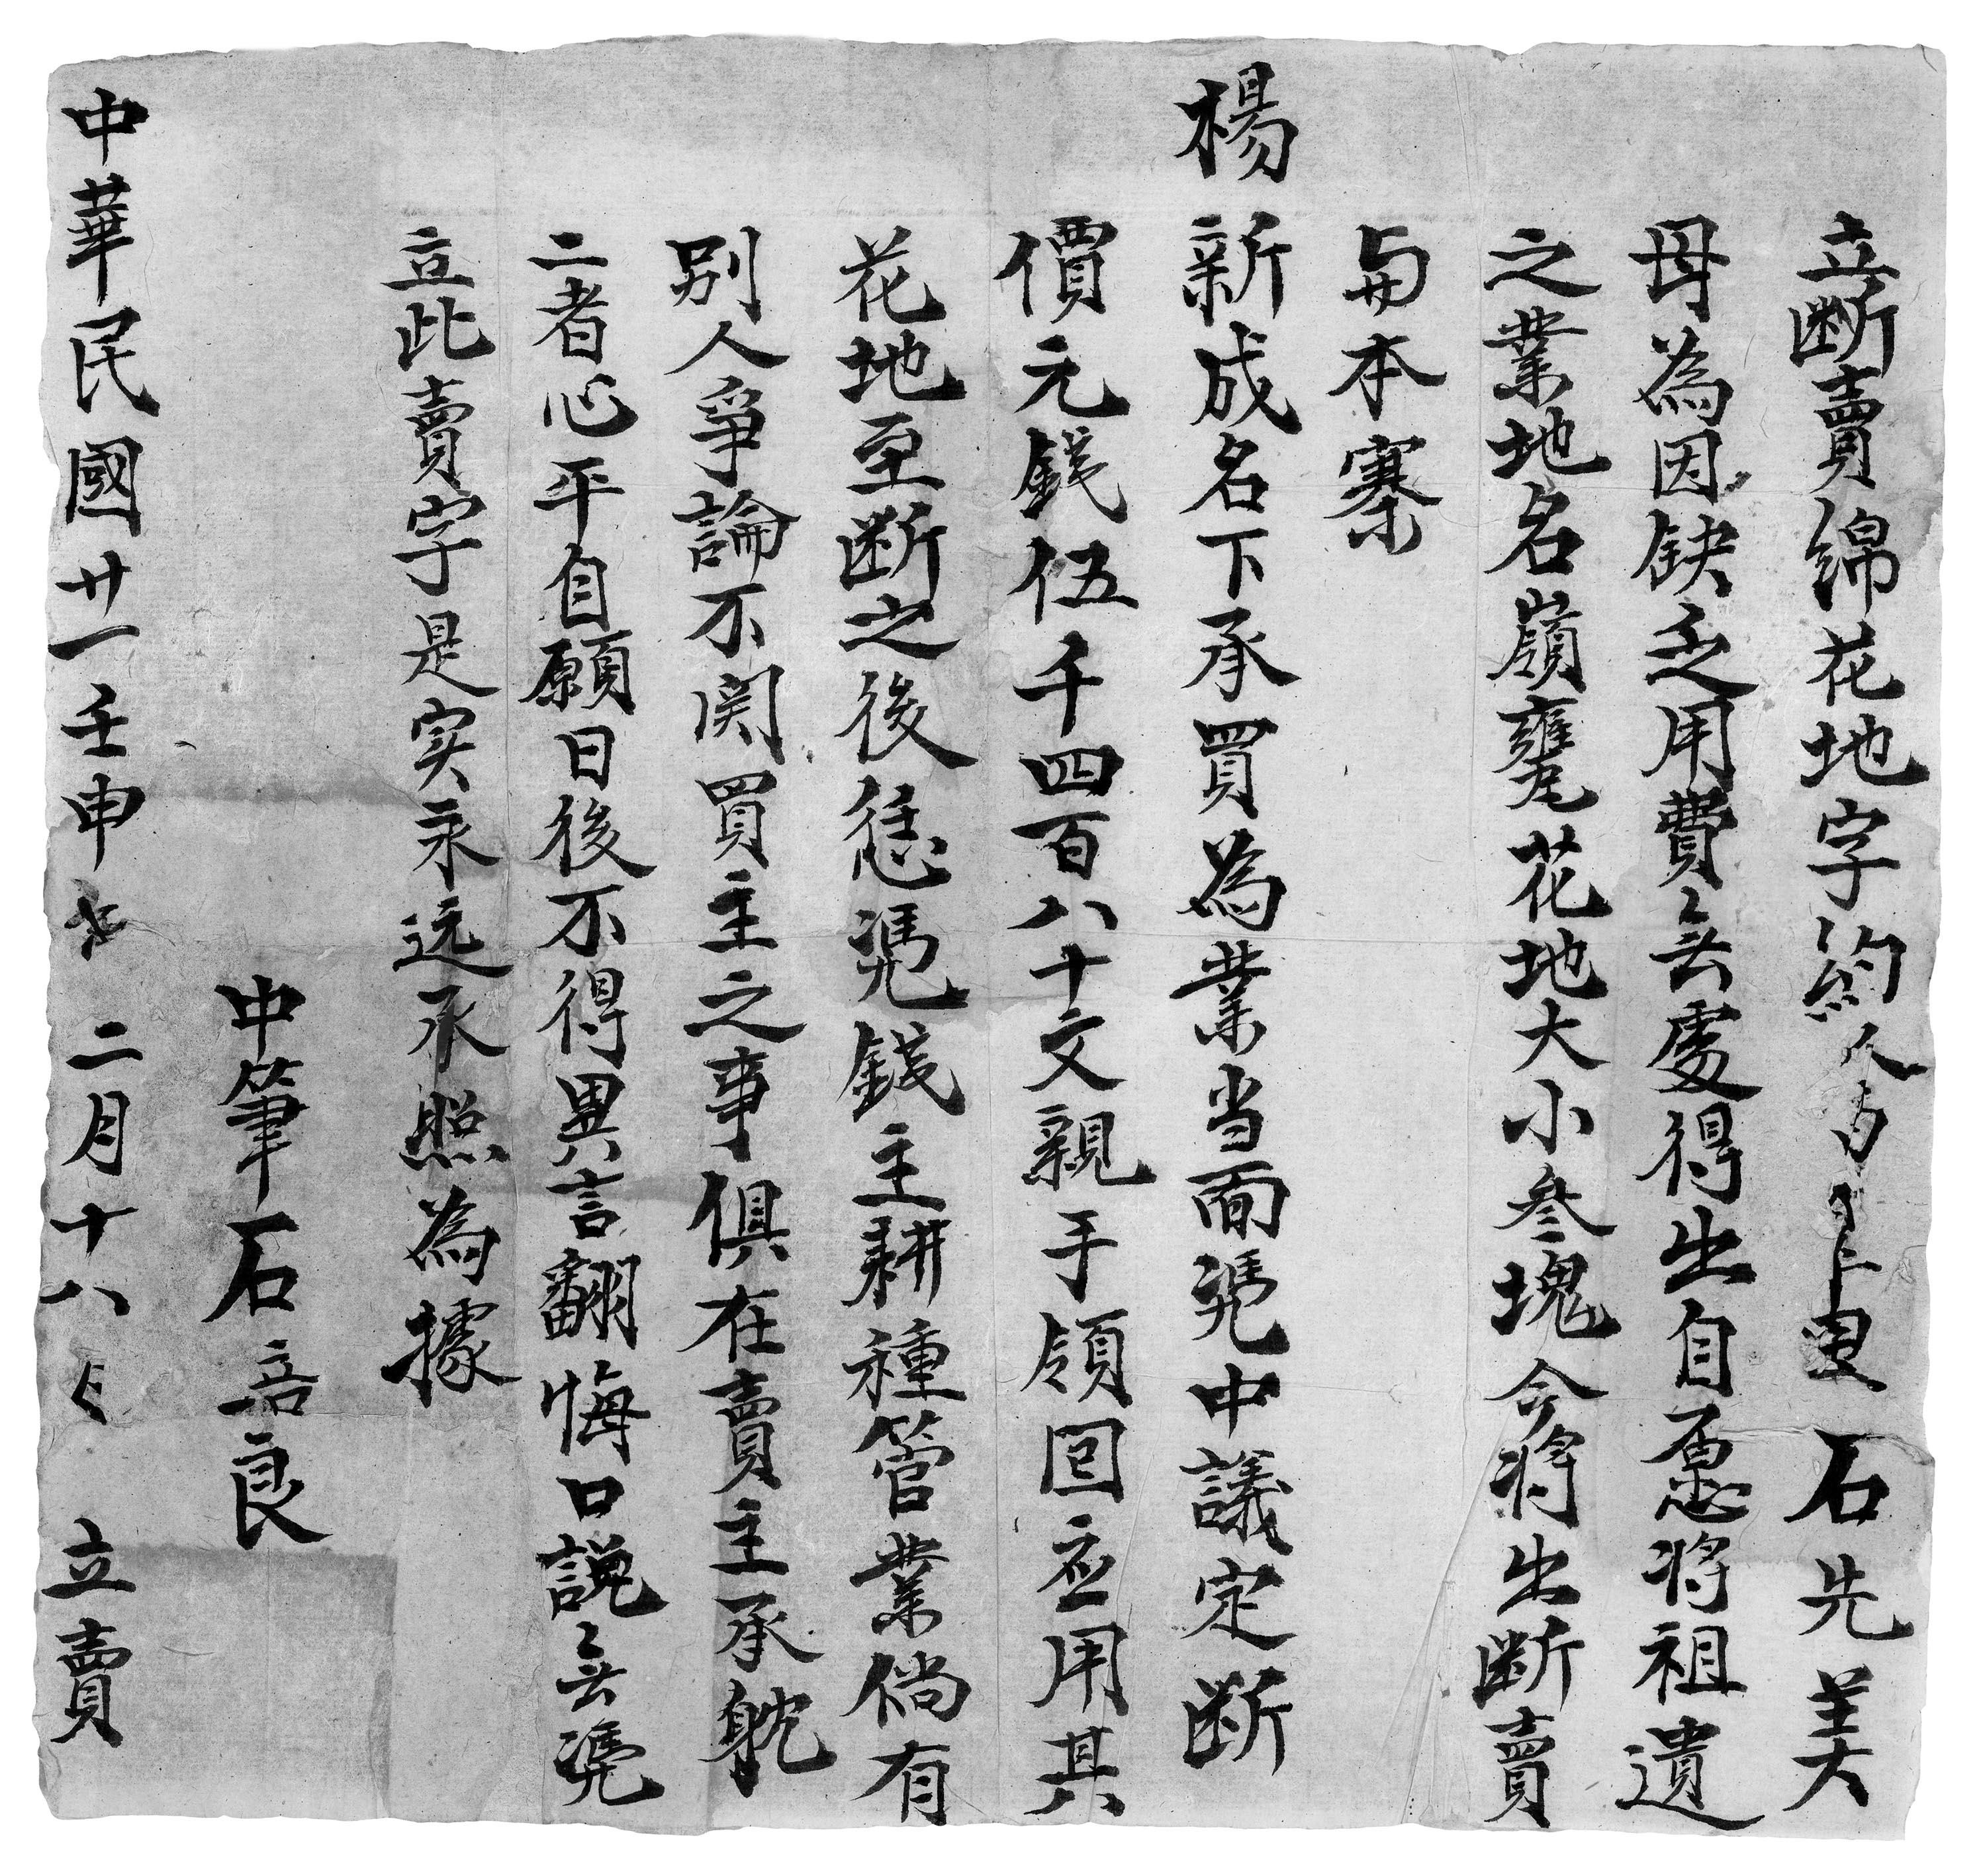 立断賣綿花地字約人 石先美
母為因缺乏用費無處得出自愿將祖遺
之業地名嶺甕花地大小叁塊今將出断賣
與本寨
楊新成名下承買為業当面凴中議定断
價元銭伍千四百八十文親手領回应用其
花地至断之後恁凴銭主耕種管業倘有
别人爭論不関買主之事俱在賣主承躭
二者心平自願日後不得異言翻悔口説無凴
立此賣字是实永远承照為據
中筆石 良
中華民國廿一壬申 二月十八 立賣